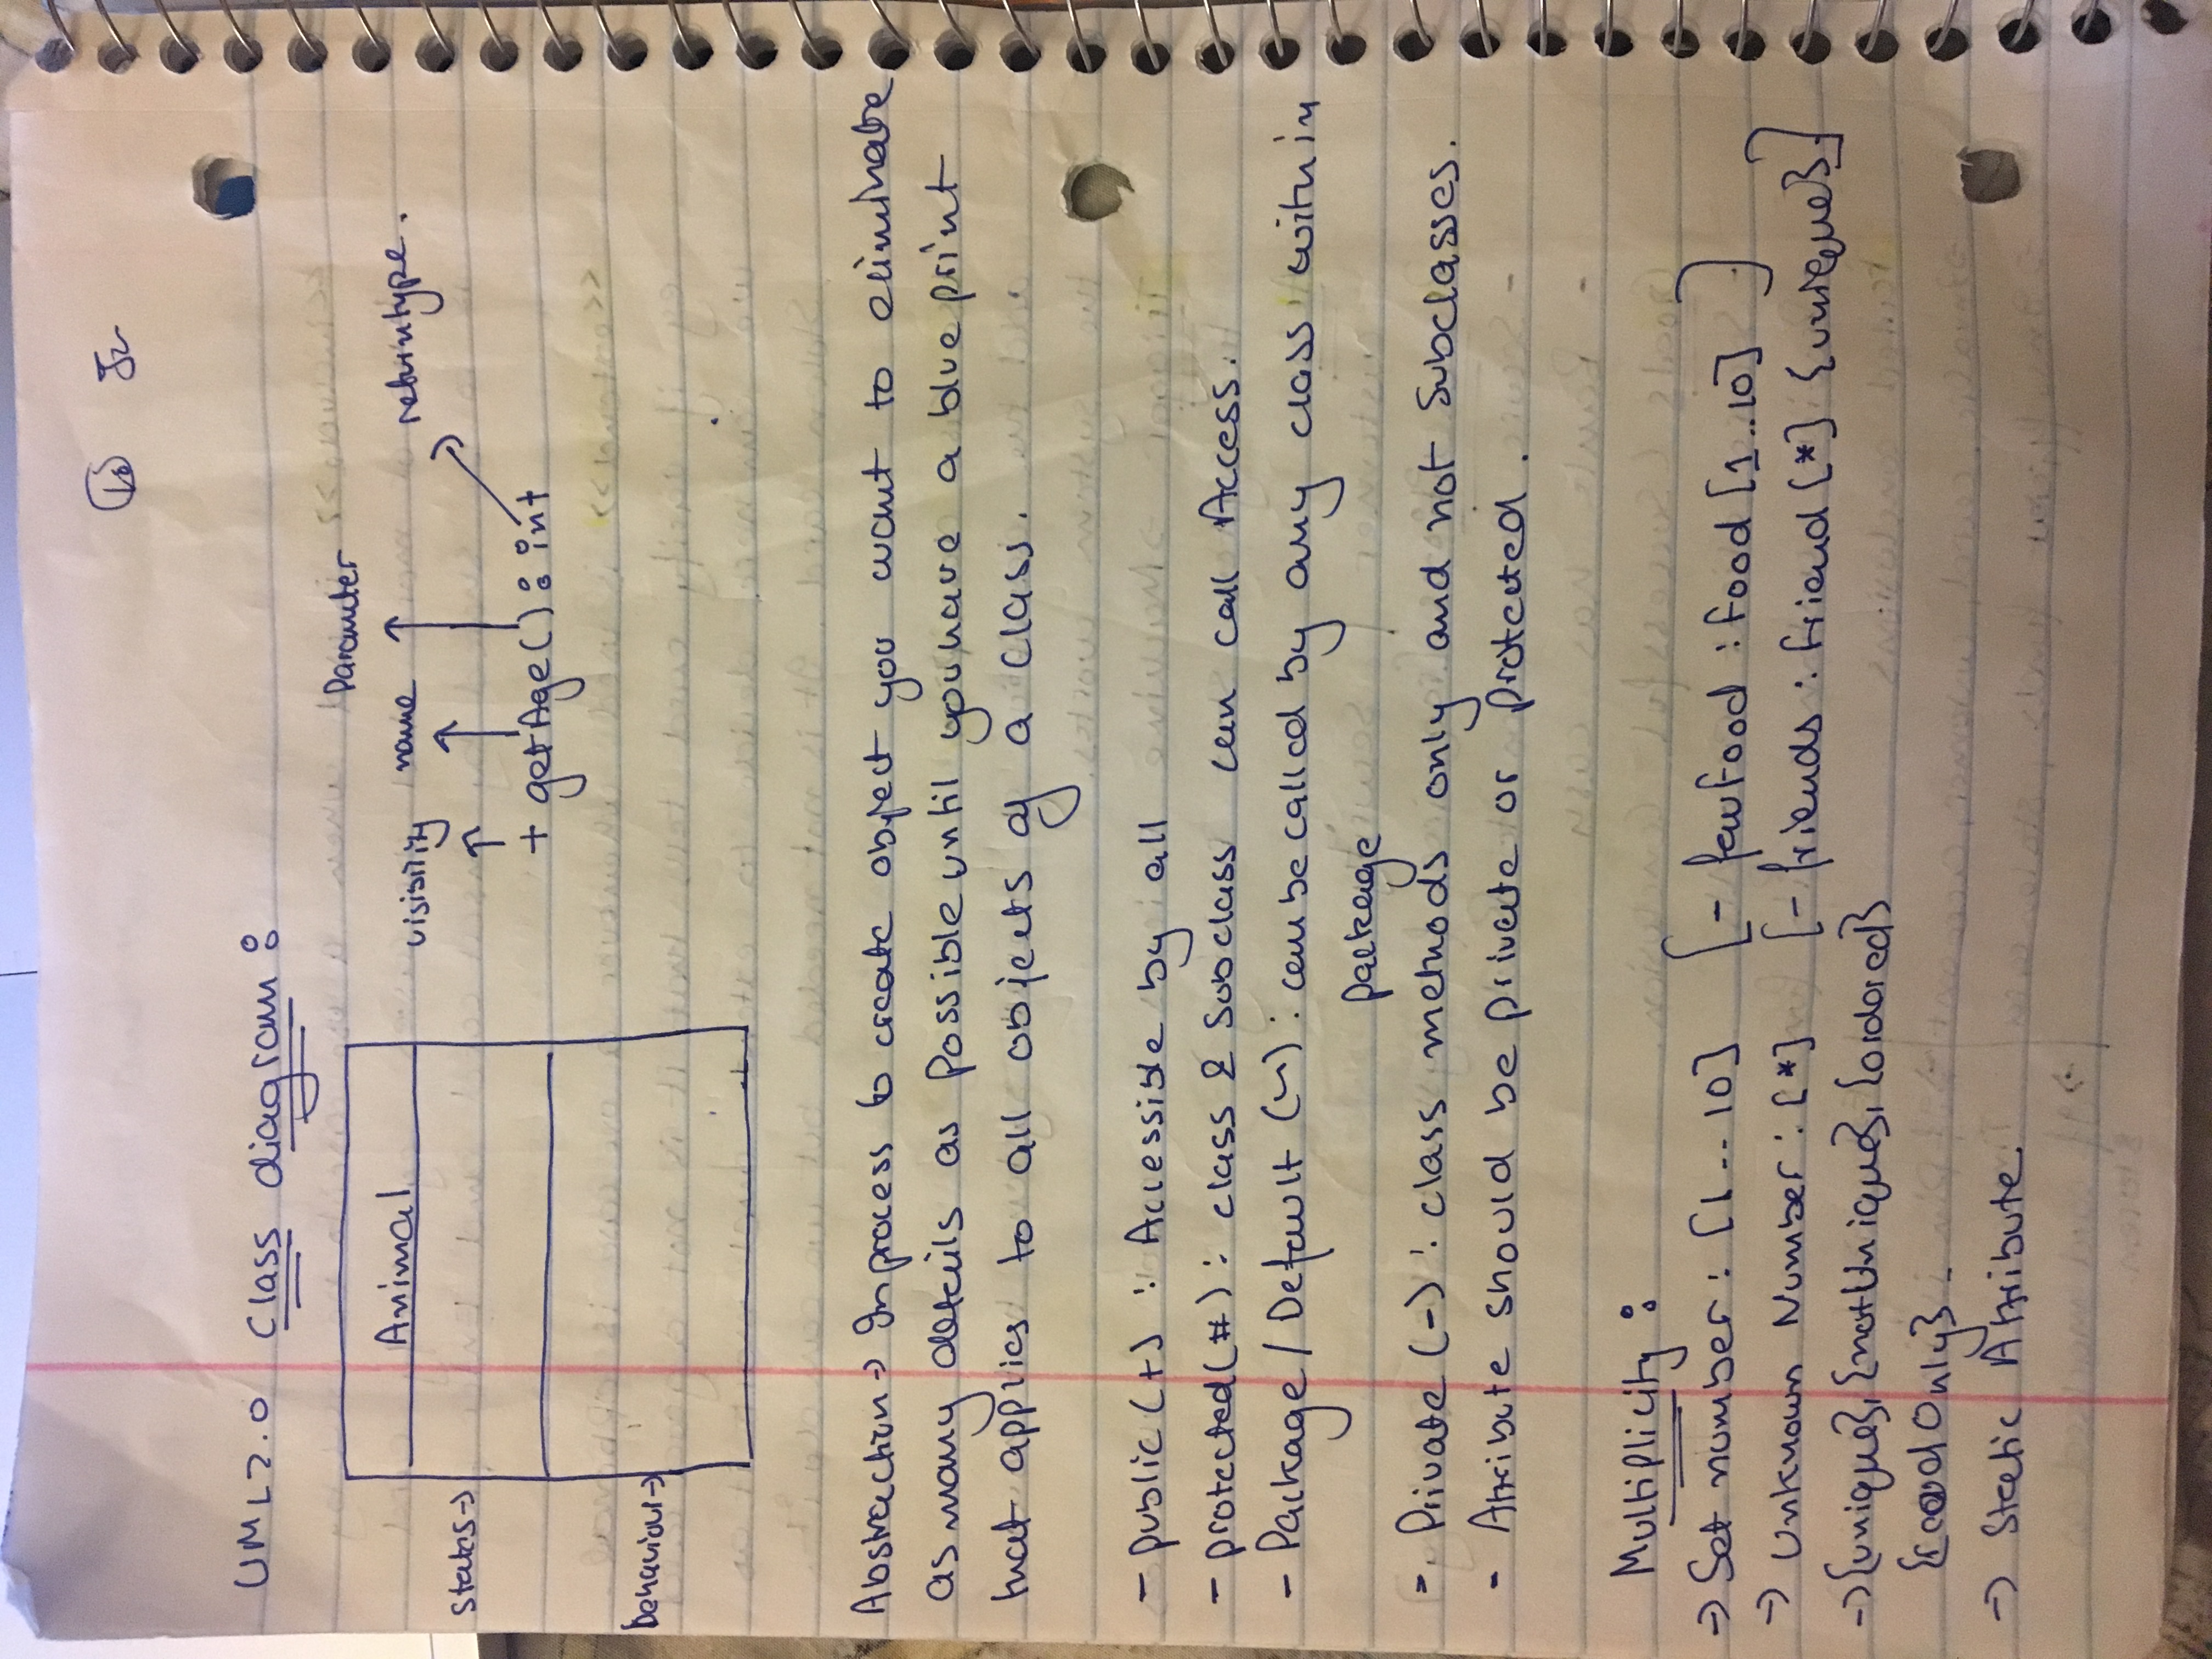 UML 2.0 Class diagram :
Parameter
Animal
visibility name returntype.
states →
+ getAge() : int
behaviour →
Abstraction → In process to create object you want to eliminate
as many details as possible until you have a blue print
that applies to all objects of a class.
- public (+) : Accessible by all
- protected (#) : class & Subclass can call Access.
- Package / Default (~) : can be called by any class within
package
- Private (-) : class methods only and not Subclasses.
- Attribute should be private or protected.
Multiplicity :
→ Set number : [1..10] [- favFood : Food [1..10] ]
→ Unknown Number : [*] [- friends : Friend [*] {unique}]
→ {unique}, {notUnique}, {ordered}
{readOnly}.
→ Static Attribute.